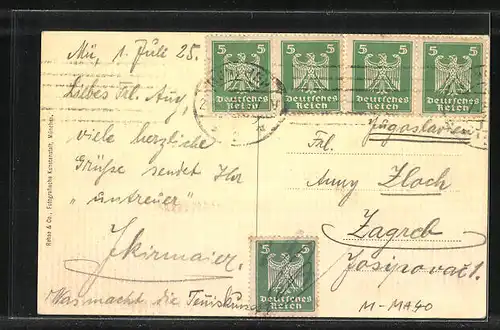 Mü, 1. Juli 25.
Liebes Frl. Anny
viele herzliche
Grüße sendet Ihr
"untreuer"
Was macht die
Rehse & Co., Fotografische Kunstanstalt, München.
5 5 5 5 5 5 5 5
Deutsches Deutsches Deutsches Deutsches
Reich Reich Reich Reich
Jugoslavien
Frl.
Anny Zloch
Zagreb
5 5
Deutsches
Reich
M-MA40